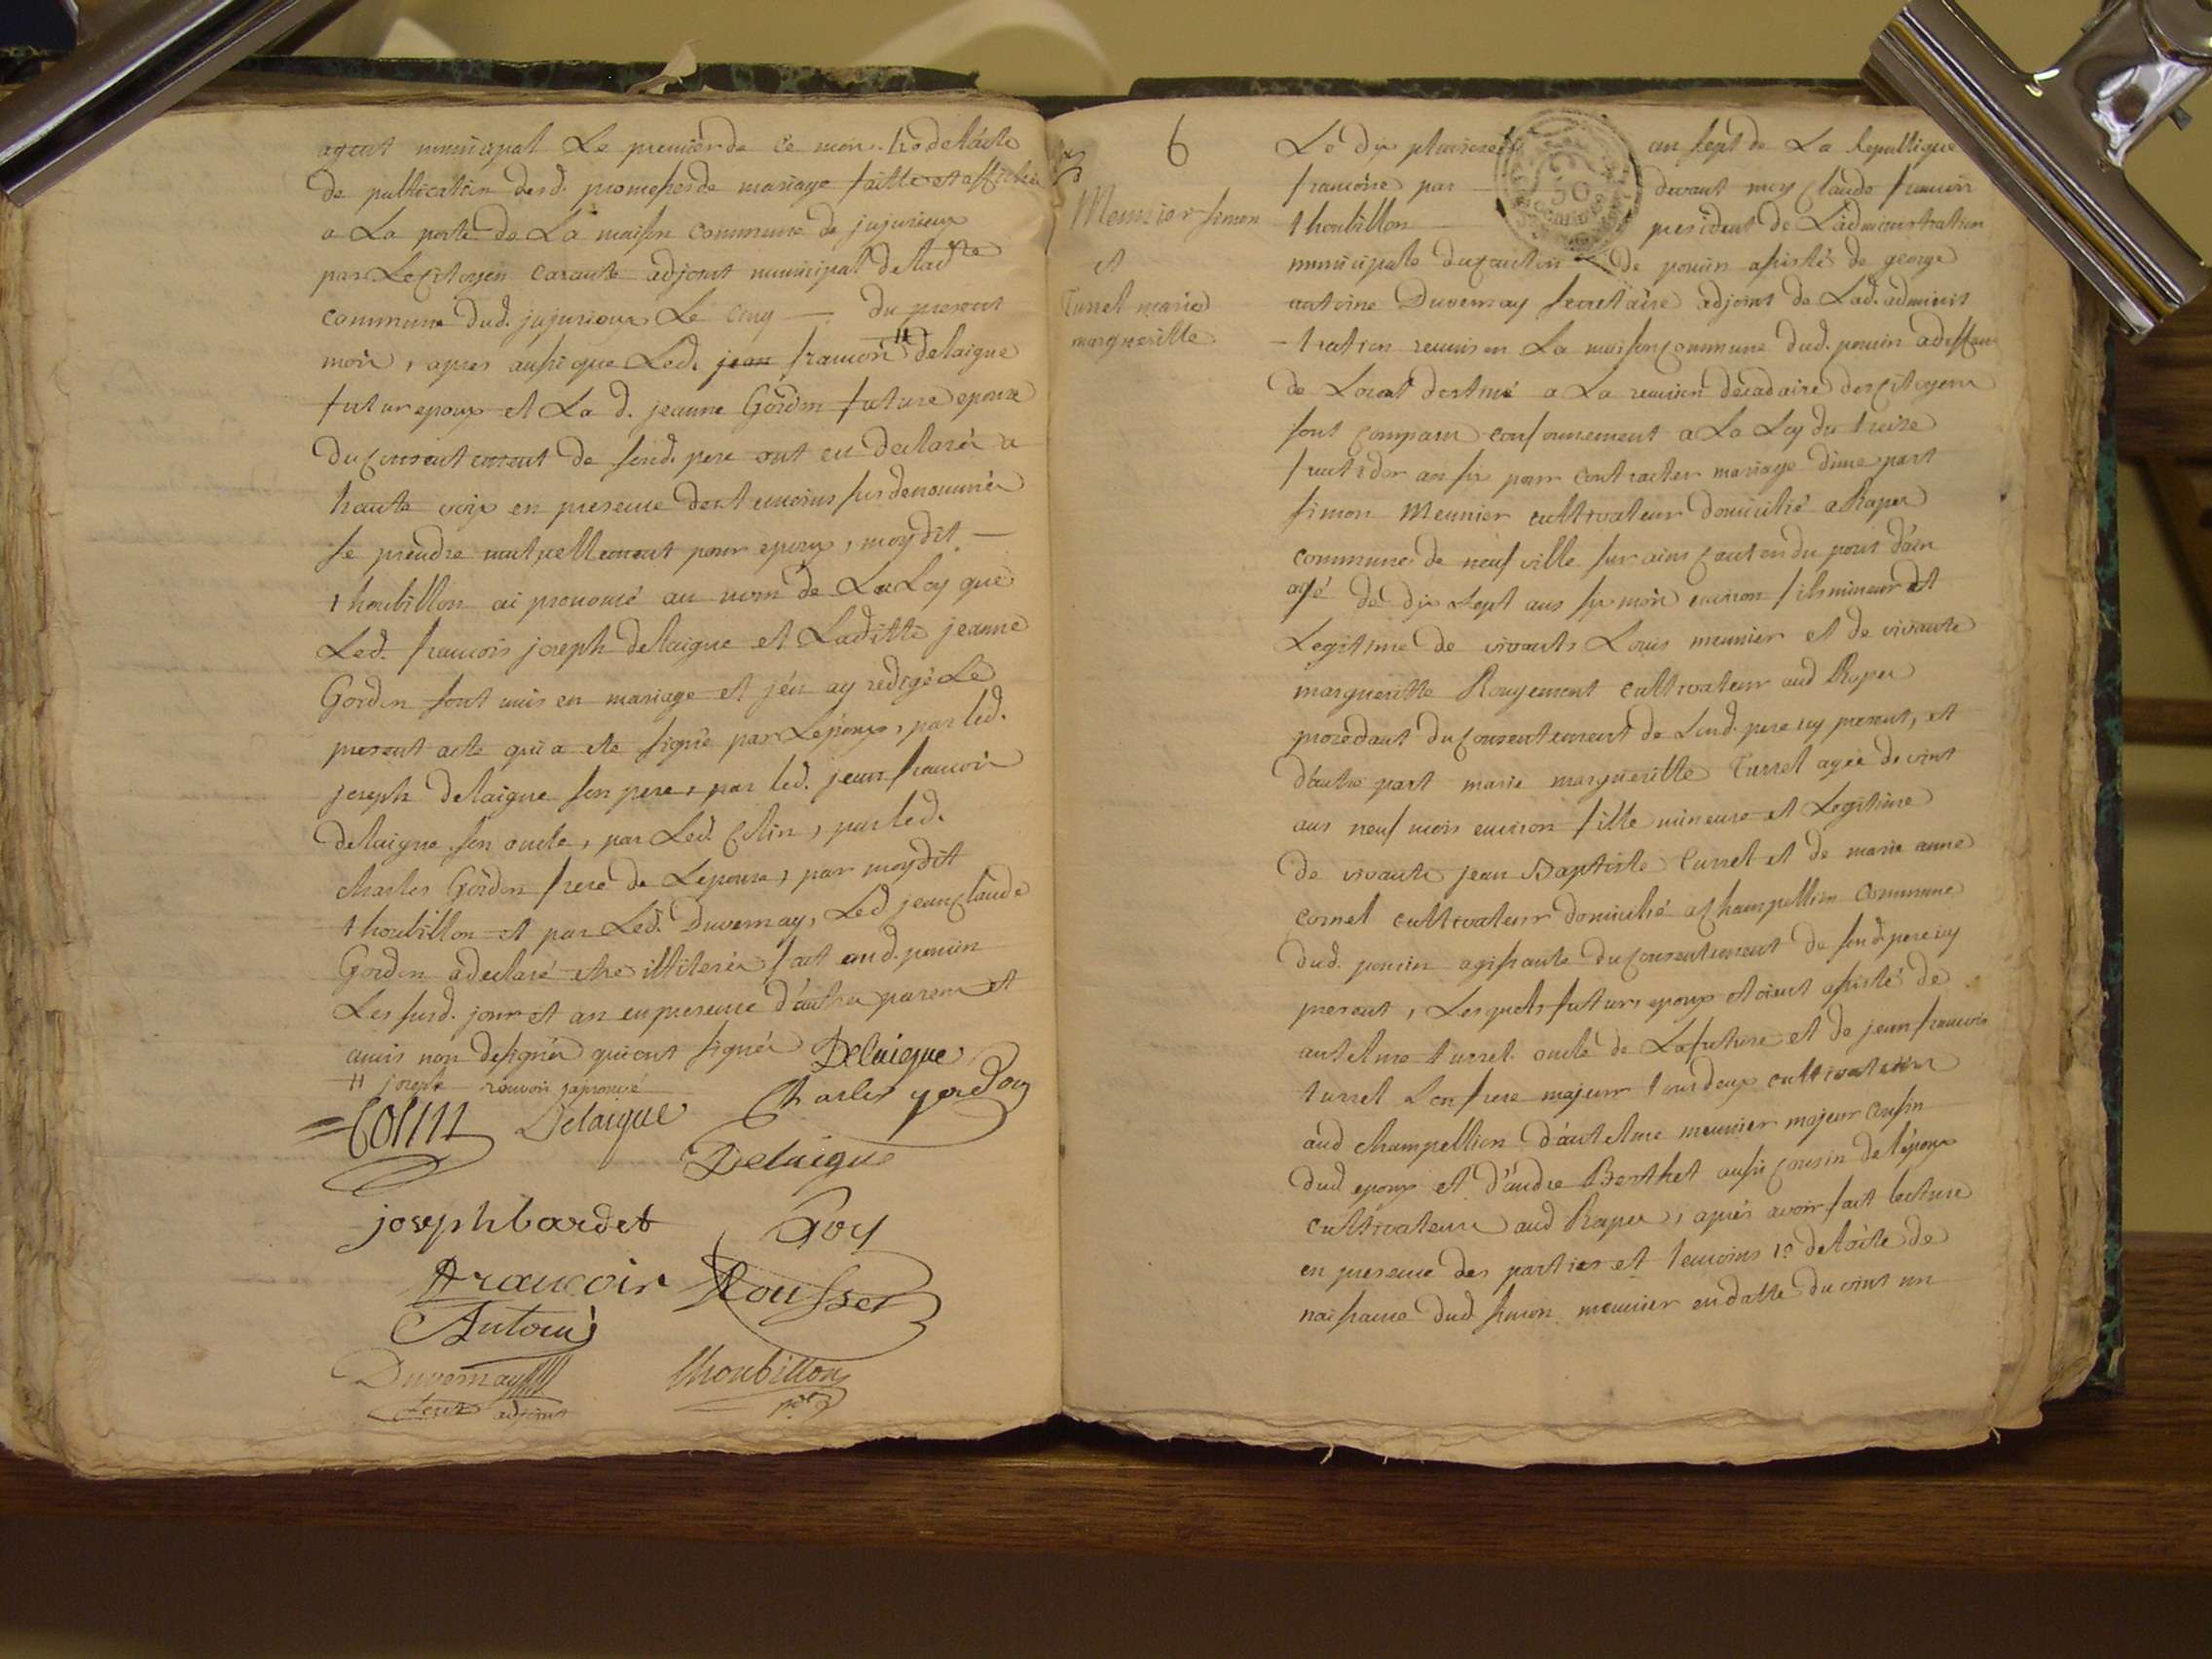 agent municipal Le premier de ce mois. 4o de lacte
de publication desd. promesses de mariage faitte et affichée
a La porte de La maison commune de jujurieux
par Le Citoyen adjoint municipal de ladte
commune dud. jujurieux Le cinq — du present
mois, apres aussi que Led. jean francois # delaigue
futur epoux et La d. jeanne Gordon future epouse
du consentement de sond. pere ont eu declaré a
haute voix en presence des temoins sus denommés
se prendre mutuellement pour epoux, moydit —
thoubillon ai prononcé au nom de La Loy que
Led. francois joseph delaigue et Laditte jeanne
Gordon sont unis en mariage et j'en ay redigé Le
present acte qui a ete signé par Lépoux, par led.
joseph delaigue son pere, par led. jean francois
delaigue son oncle, par Led. Colin, par led.
charles Gordon frere de Lepouse, par moydit
thoubillon et par Led. Duvernay, Led. jean claude
Gordon a declaré etre illiteré, fait aud. poncin
Les susd. jour et an en presence d'autres parens et
amis non designés qui ont signés Delaigue
# joseph renvoi japrouvé
Colin Delaigue Charles gordon
Delaigue
joseph bardet Goy
francois Rousset
Antoine
Duvernay Thoubillon
secre adjoint pdt
6
Meunier simon
et
Turrel marie
margueritte
Le dix pluviose an sept de La republique
francoise par devant moy Claude francois
thoubillon — president de L'administration
municipale du canton de poncin assisté de george
antoine Duvernay secretaire adjoint de Lad. adminis
-tration reunis en La maison commune dud. poncin
de Local destiné a La reunion decadaire des citoyens
sont comparu conformement a La Loy du treize
fructidor an six pour contracter mariage d'une part
simon Meunier cultivateur domicilié a Rapes
commune de neufville sur ains canton du pont d'ain
agé de dix sept ans six mois environ fils mineur et
Legitime de vivants Louis meunier et de vivante
margueritte Rougemont cultivateur aud Rapes
procedant du consentement de sond. pere icy present, et
d'autre part marie margueritte Turrel agée de vint
ans neuf mois environ fille mineure et Legitime
de vivants jean Baptiste Turrel et de marie anne
cornet cultivateur domicilié a Champellion commune
dud. poncin agissante du consentement de sond. pere icy
present, Lesquels futurs epoux etoient assisté de
antelme turrel oncle de La future et de jean francois
turrel son frere majeur tous deux cultivateurs
aud champellion d'antelme meunier majeur cousin
dud epoux et d'andre Berthet aussi cousin de l'epoux
cultivateurs aud Rapes, apres avoir fait lecture
en presence des parties et temoins 1o de l'acte de
naissance dud simon meunier en datte du vint un